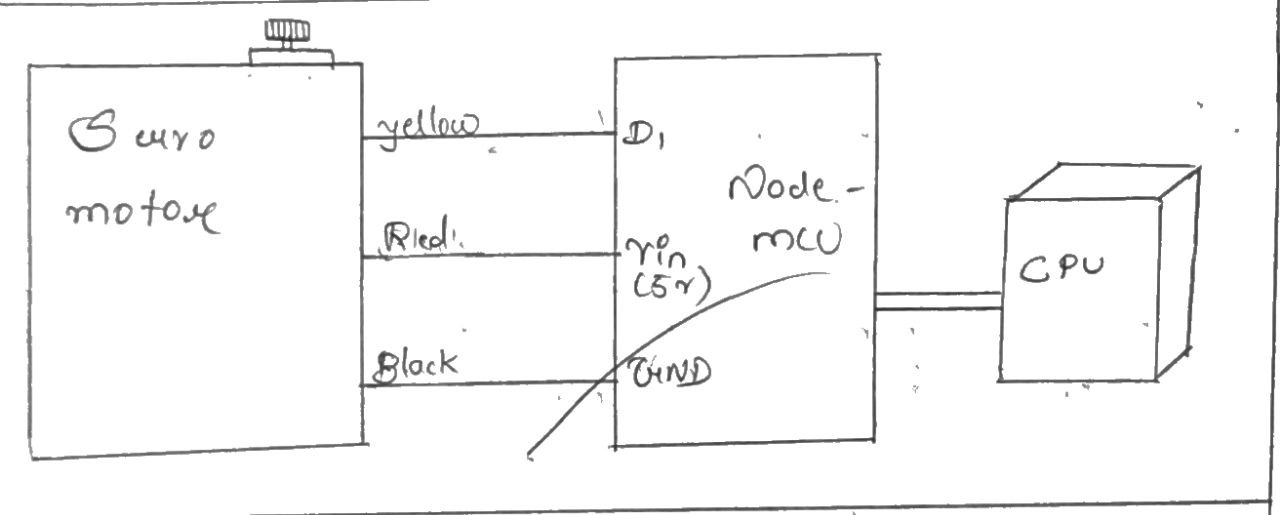 Servo
motor
yellow
Red
Black
D1
Vin
(5v)
GND
Node-
MCU
CPU